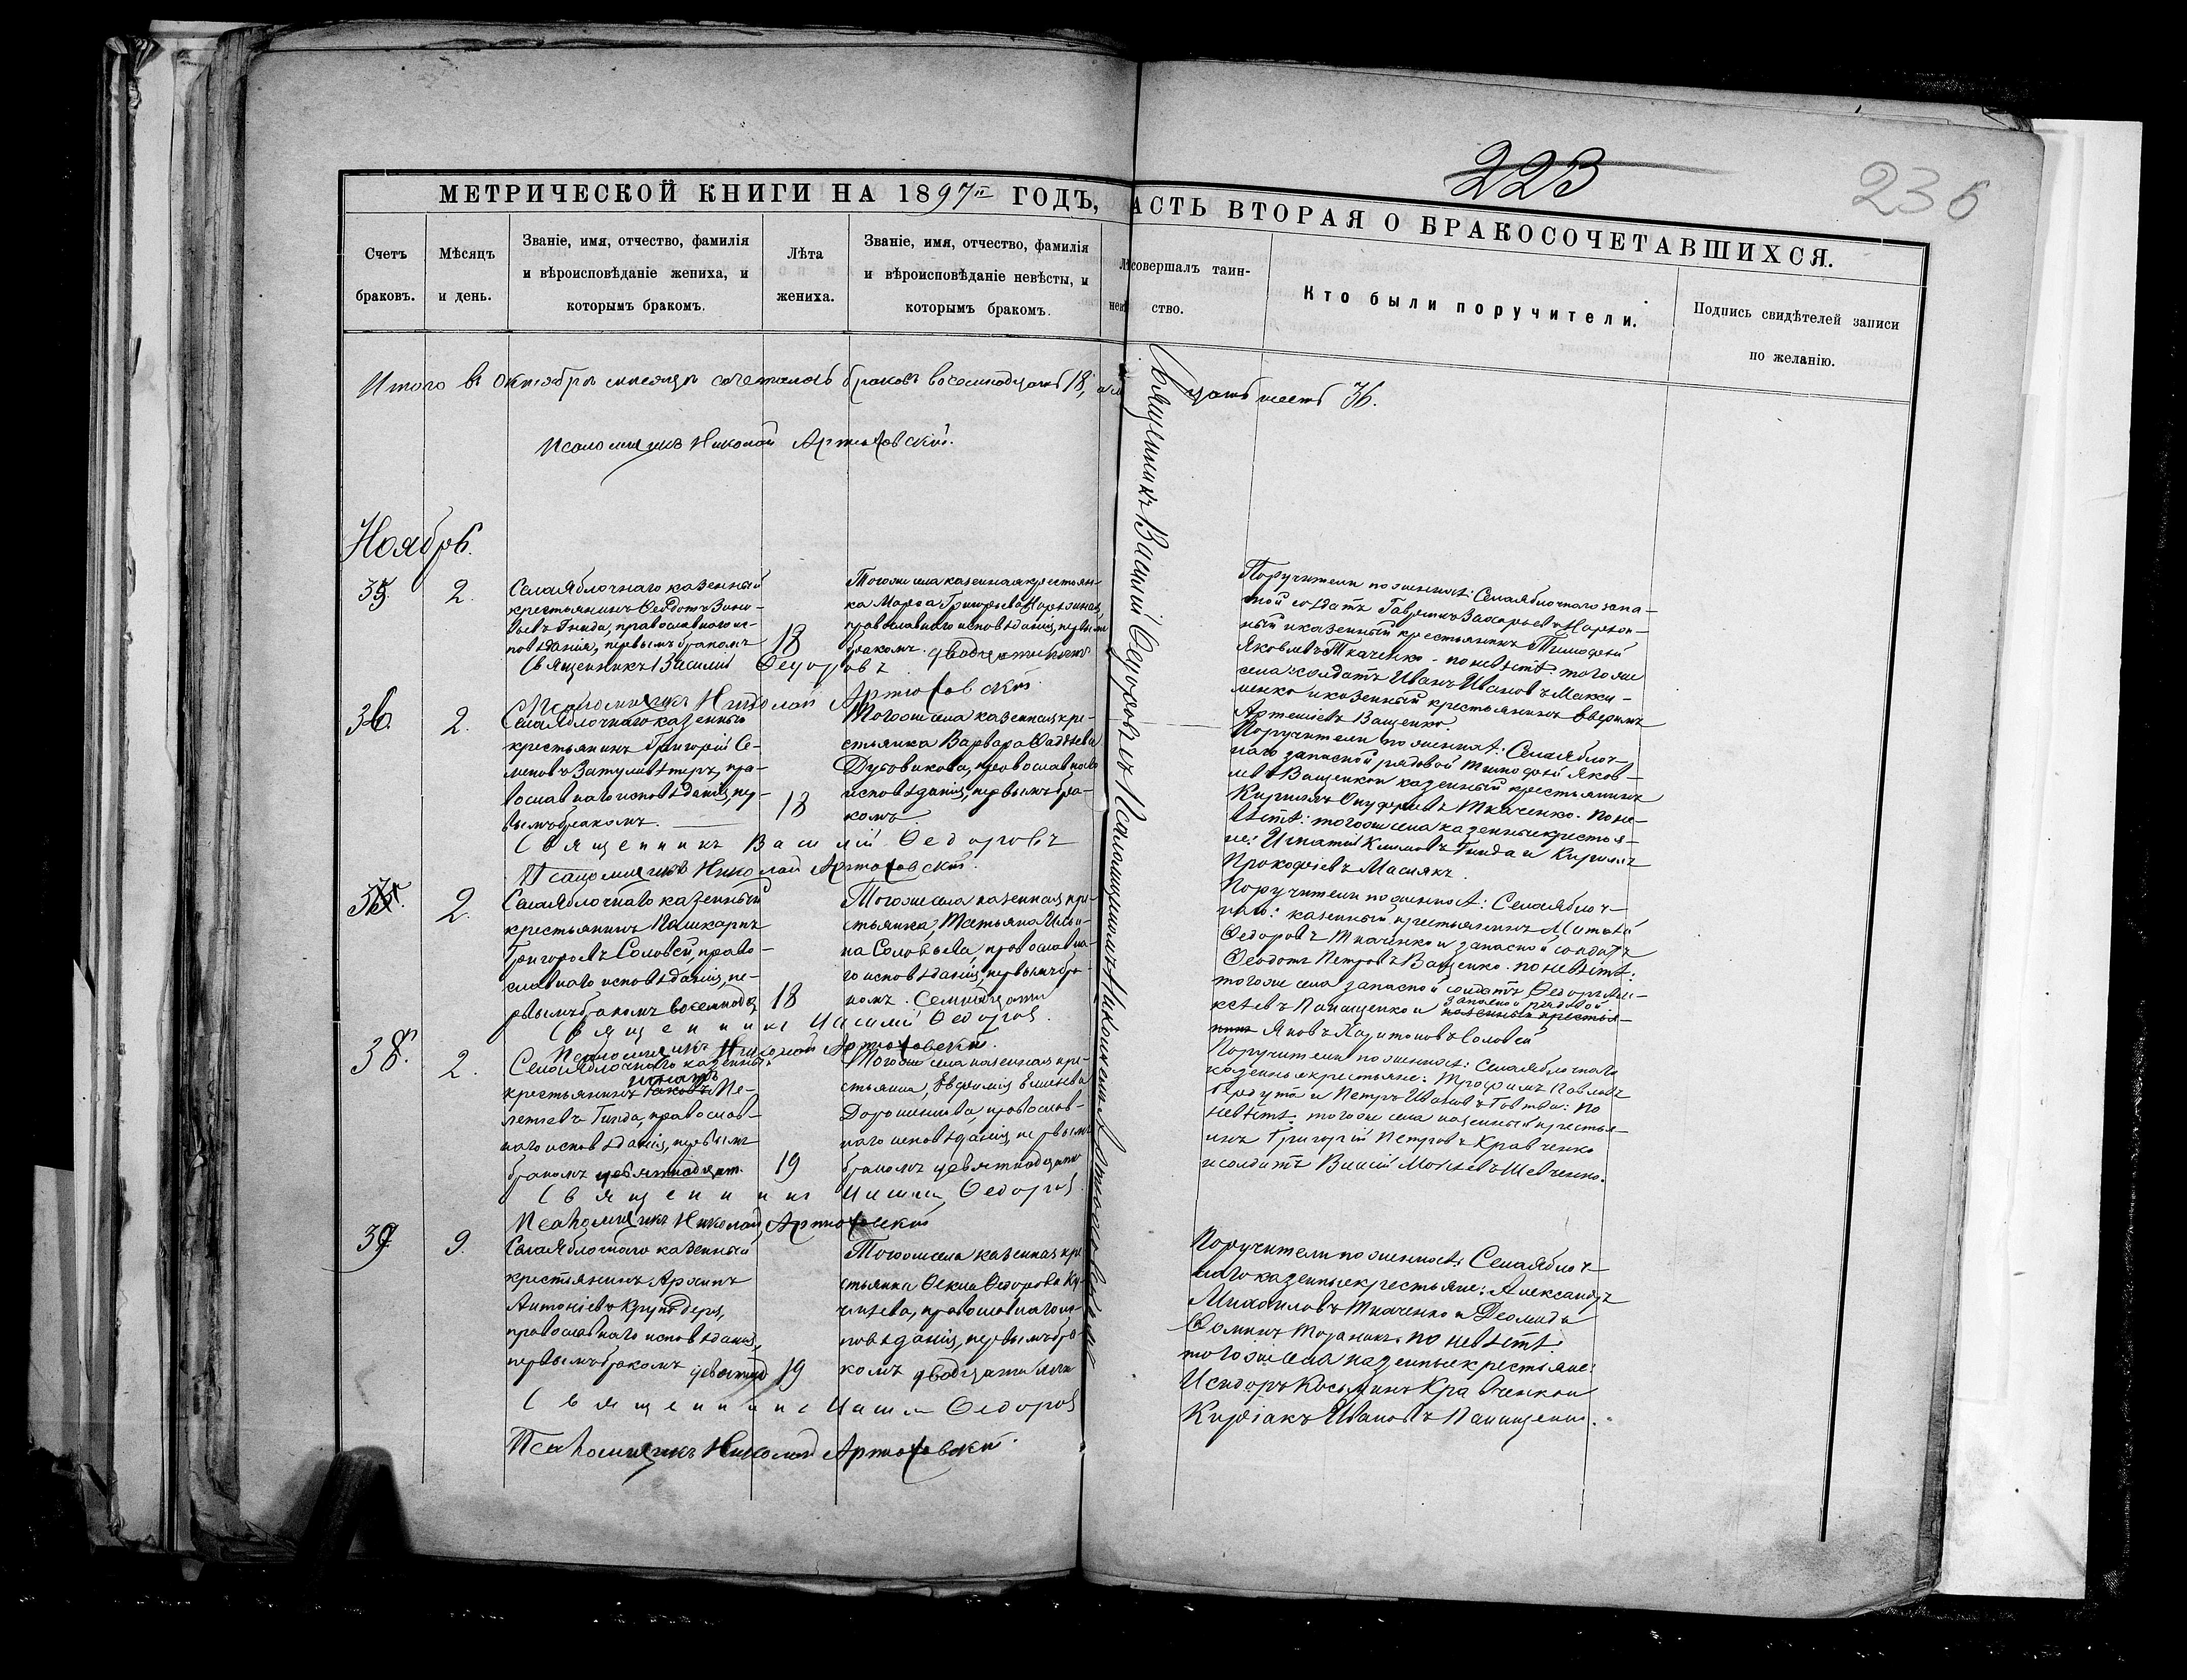 223
236
МЕТРИЧЕСКОЙ КНИГИ НА 1897й ГОДЪ,
АСТЬ ВТОРАЯ О БРАКОСОЧЕТАВШИХСЯ.
Счетъ
браковъ.
Мѣсяцъ
и день.
Званіе, имя, отчество, фамилія
и вѣроисповѣданіе жениха, и
которымъ бракомъ.
Лѣта
жениха.
Званіе, имя, отчество, фамилія
и вѣроисповѣданіе невѣсты, и
которымъ бракомъ.
совершалъ таин-
ство.
Кто были поручители.
Подпись свидѣтелей записи
по желанію.
Итого въ Октябрѣ мѣсяцѣ сочеталось браковъ восемнадцать 18,
цать шесть 36.
Псаломщикъ Николай Артюховскій.
Священникъ Василій Ѳедоровъ съ Псаломщикомъ Николаемъ
Ноябрь.
35. 2.
Села Яблочнаго казенный
крестьянинъ Ѳеодотъ Зино-
вьевъ Гнида, православнаго ис-
повѣданія, первымъ бракомъ
18
Того же села казенная крестьян-
ка Марѳа Григорьева
православнаго исповѣданія, первымъ
бракомъ.
Священникъ Василій Ѳедоровъ
Псаломщикъ Николай Артюховскій.
Поручители по женихѣ: Села Яблочнаго запа-
сной солдатъ Гавріилъ Захарьевъ
ный и казенный крестьянинъ Тимофей
Яковлевъ Ткаченко. по невѣстѣ: того же
села: солдатъ Иванъ Ивановъ Макси-
менко и казенный крестьянинъ
Артеміевъ Ващенко
36. 2.
Села Яблочнаго казенный
крестьянинъ Григорій Се-
меновъ Затуливѣтеръ, пра-
вославнаго исповѣданія, пер-
вымъ бракомъ.
18
Того же села казенная кре-
стьянка Варвара Фадѣева
Дубовикова, православнаго
исповѣданія, первымъ бра-
комъ.
Священникъ Василій Ѳедоровъ
Псаломщикъ Николай Артюховскій.
Поручители по женихѣ: Села Яблоч-
наго запасной рядовой Тимофей Яков-
левъ Ващенко и казенный крестьянинъ
Кириллъ Онуфріевъ Ткаченко. По не-
вѣстѣ: того же села казенные крестья-
не: Игнатій Климовъ Гнида и Кириллъ
Прокофьевъ Маслякъ.
2.
Села Яблочнаго казенный
крестьянинъ
Григорьевъ Соловей, право-
славнаго исповѣданія, пе-
рвымъ бракомъ
18
Того же села казенная кре-
стьянка, Татьяна Ильи-
на Соловьева, православна-
го исповѣданія, первымъ бра-
комъ.
Священникъ Василій Ѳедоровъ.
Псаломщикъ Николай Артюховскій.
Поручители по женихѣ: Села Яблоч-
наго: казенный крестьянинъ Матѳей
Федоровъ Ткаченко и запасной солдатъ
Ѳеодотъ Петровъ Ващенко. по невѣстѣ:
того же села запасной солдатъ Ѳедоръ Але-
ксѣевъ Панащенко и запасной рядовой
Яковъ Харитоновъ Соловей
38. 2.
Села Яблочнаго казенный
крестьянинъ
Гнида, православ-
наго исповѣданія, первымъ
бракомъ
19
Того же села казенная кре-
стьянка, Евфимія
Дорошенкова, православ-
наго исповѣданія, первымъ
бракомъ девятнадцати
Священникъ Василій Ѳедоровъ
Псаломщикъ Николай Артюховскій
Поручители по женихѣ: Села Яблочнаго
казенные крестьяне: Трофимъ Павловъ
и Петръ Ивановъ По
невѣстѣ: того же села казенный крестья-
нинъ Григорій Петровъ Кравченко
и солдатъ Власій Моисеевъ Шевченко.
39 9.
Села Яблочнаго казенный
крестьянинъ Архипъ
Антоніевъ
православнаго исповѣданія,
первымъ бракомъ
19
Того же села казенная кре
стьянка Ѳекла Ѳедорова
православнаго ис
повѣданія, первымъ бра
комъ
Священникъ Ѳедоровъ
Псаломщикъ Николай Артюховскій.
Поручители по женихѣ: Села Яблоч-
наго казенные крестьяне: Александръ
Михайловъ Ткаченко и
Ѳоминъ по невѣстѣ:
того же села казенные крестьяне:
Исидоръ Косьминъ Кравченко и
Киріакъ Ивановъ